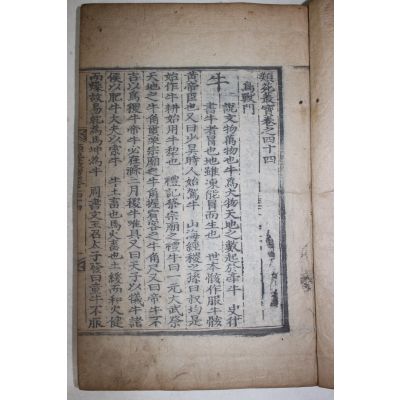 類苑叢寶卷之四十四
鳥獸門
牛
說文物萬物也牛爲大物天地之數起於牽牛 史律
書牛者冒也地雖凍能冒而生也 世本胲作服牛胲
黃帝臣也又曰少昊時人始駕牛 山海經稷之孫曰叔均是
始作牛耕始用牛犂也 禮記祭宗廟之禮牛曰一元大武祭
天地之牛角繭栗宗廟之牛角握賓客之牛角尺又曰帝牛不
吉以爲稷牛帝牛必在滌三月稷牛唯具又曰天子以犧牛諸
侯以肥牛大夫以索牛 牛土畜也馬火畜也土緩而和火健
而躁故易乾爲馬坤爲牛 周書文王召太子發曰童牛不服